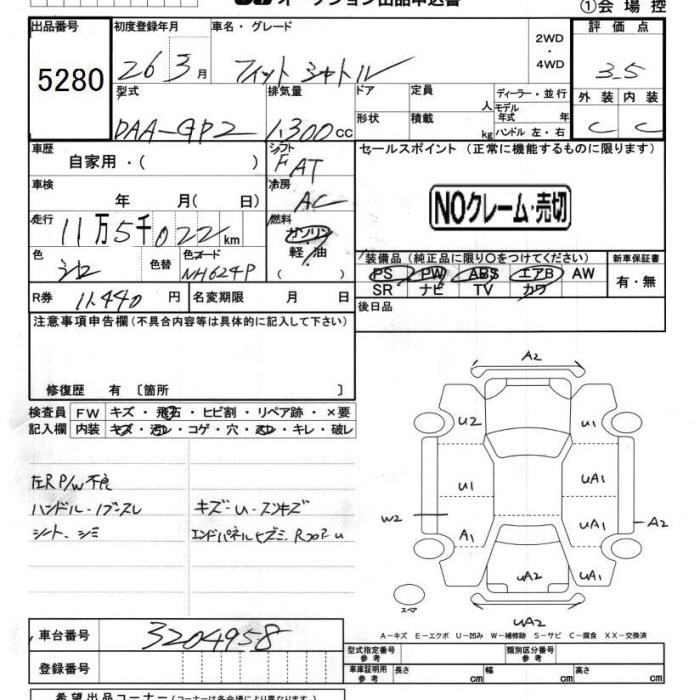 オークション出品申込書
①会場控
出品番号 初度登録年月 車名・グレード 2WD・4WD 評価点
5280 26 3月 フィットシャトル 3.5
型式 排気量 ドア 定員 人 ディーラー・並行 外装 内装
DAA-GP2 1,300cc 形状 積載 kg モデル年式 年 ハンドル 左・右 C C
車歴 自家用・( ) シフト FAT セールスポイント (正常に機能するものに限ります)
車検 年 月( 日) 冷房 AC
NOクレーム・売切
走行 11万5千022km 燃料 ガソリン 軽油
色 シロ 色替 色コード NH624P
装備品(純正品に限り○をつけてください) 新車保証書
PS PW ABS エアB AW 有・無
SR ナビ TV カワ
R券 11,440円 名変期限 月 日 後日品
注意事項申告欄(不具合内容等は具体的に記入して下さい)
修復歴 有 〔箇所 〕
検査員 FW キズ・飛石・ヒビ割・リペア跡・×要
記入欄 内装 キズ・汚レ・コゲ・穴・スレ・キレ・破レ
左R P/W不良
ハンドル・ノブスレ キズ・U・スリキズ
シート・シミ
A2
U2 U1
U1 UA1
W2 A1 UA1 A2
UA2 UA1
スペア UA2
A-キズ E-エクボ U-凹み W-補修跡 S-サビ C-腐食 XX-交換済
車台番号 3204958
型式指定番号 参考 類別区分番号 参考
登録番号 車庫証明用 参考 長さ cm 幅 cm 高さ cm
希望出品コーナー(コーナーは各会場により異なります。)